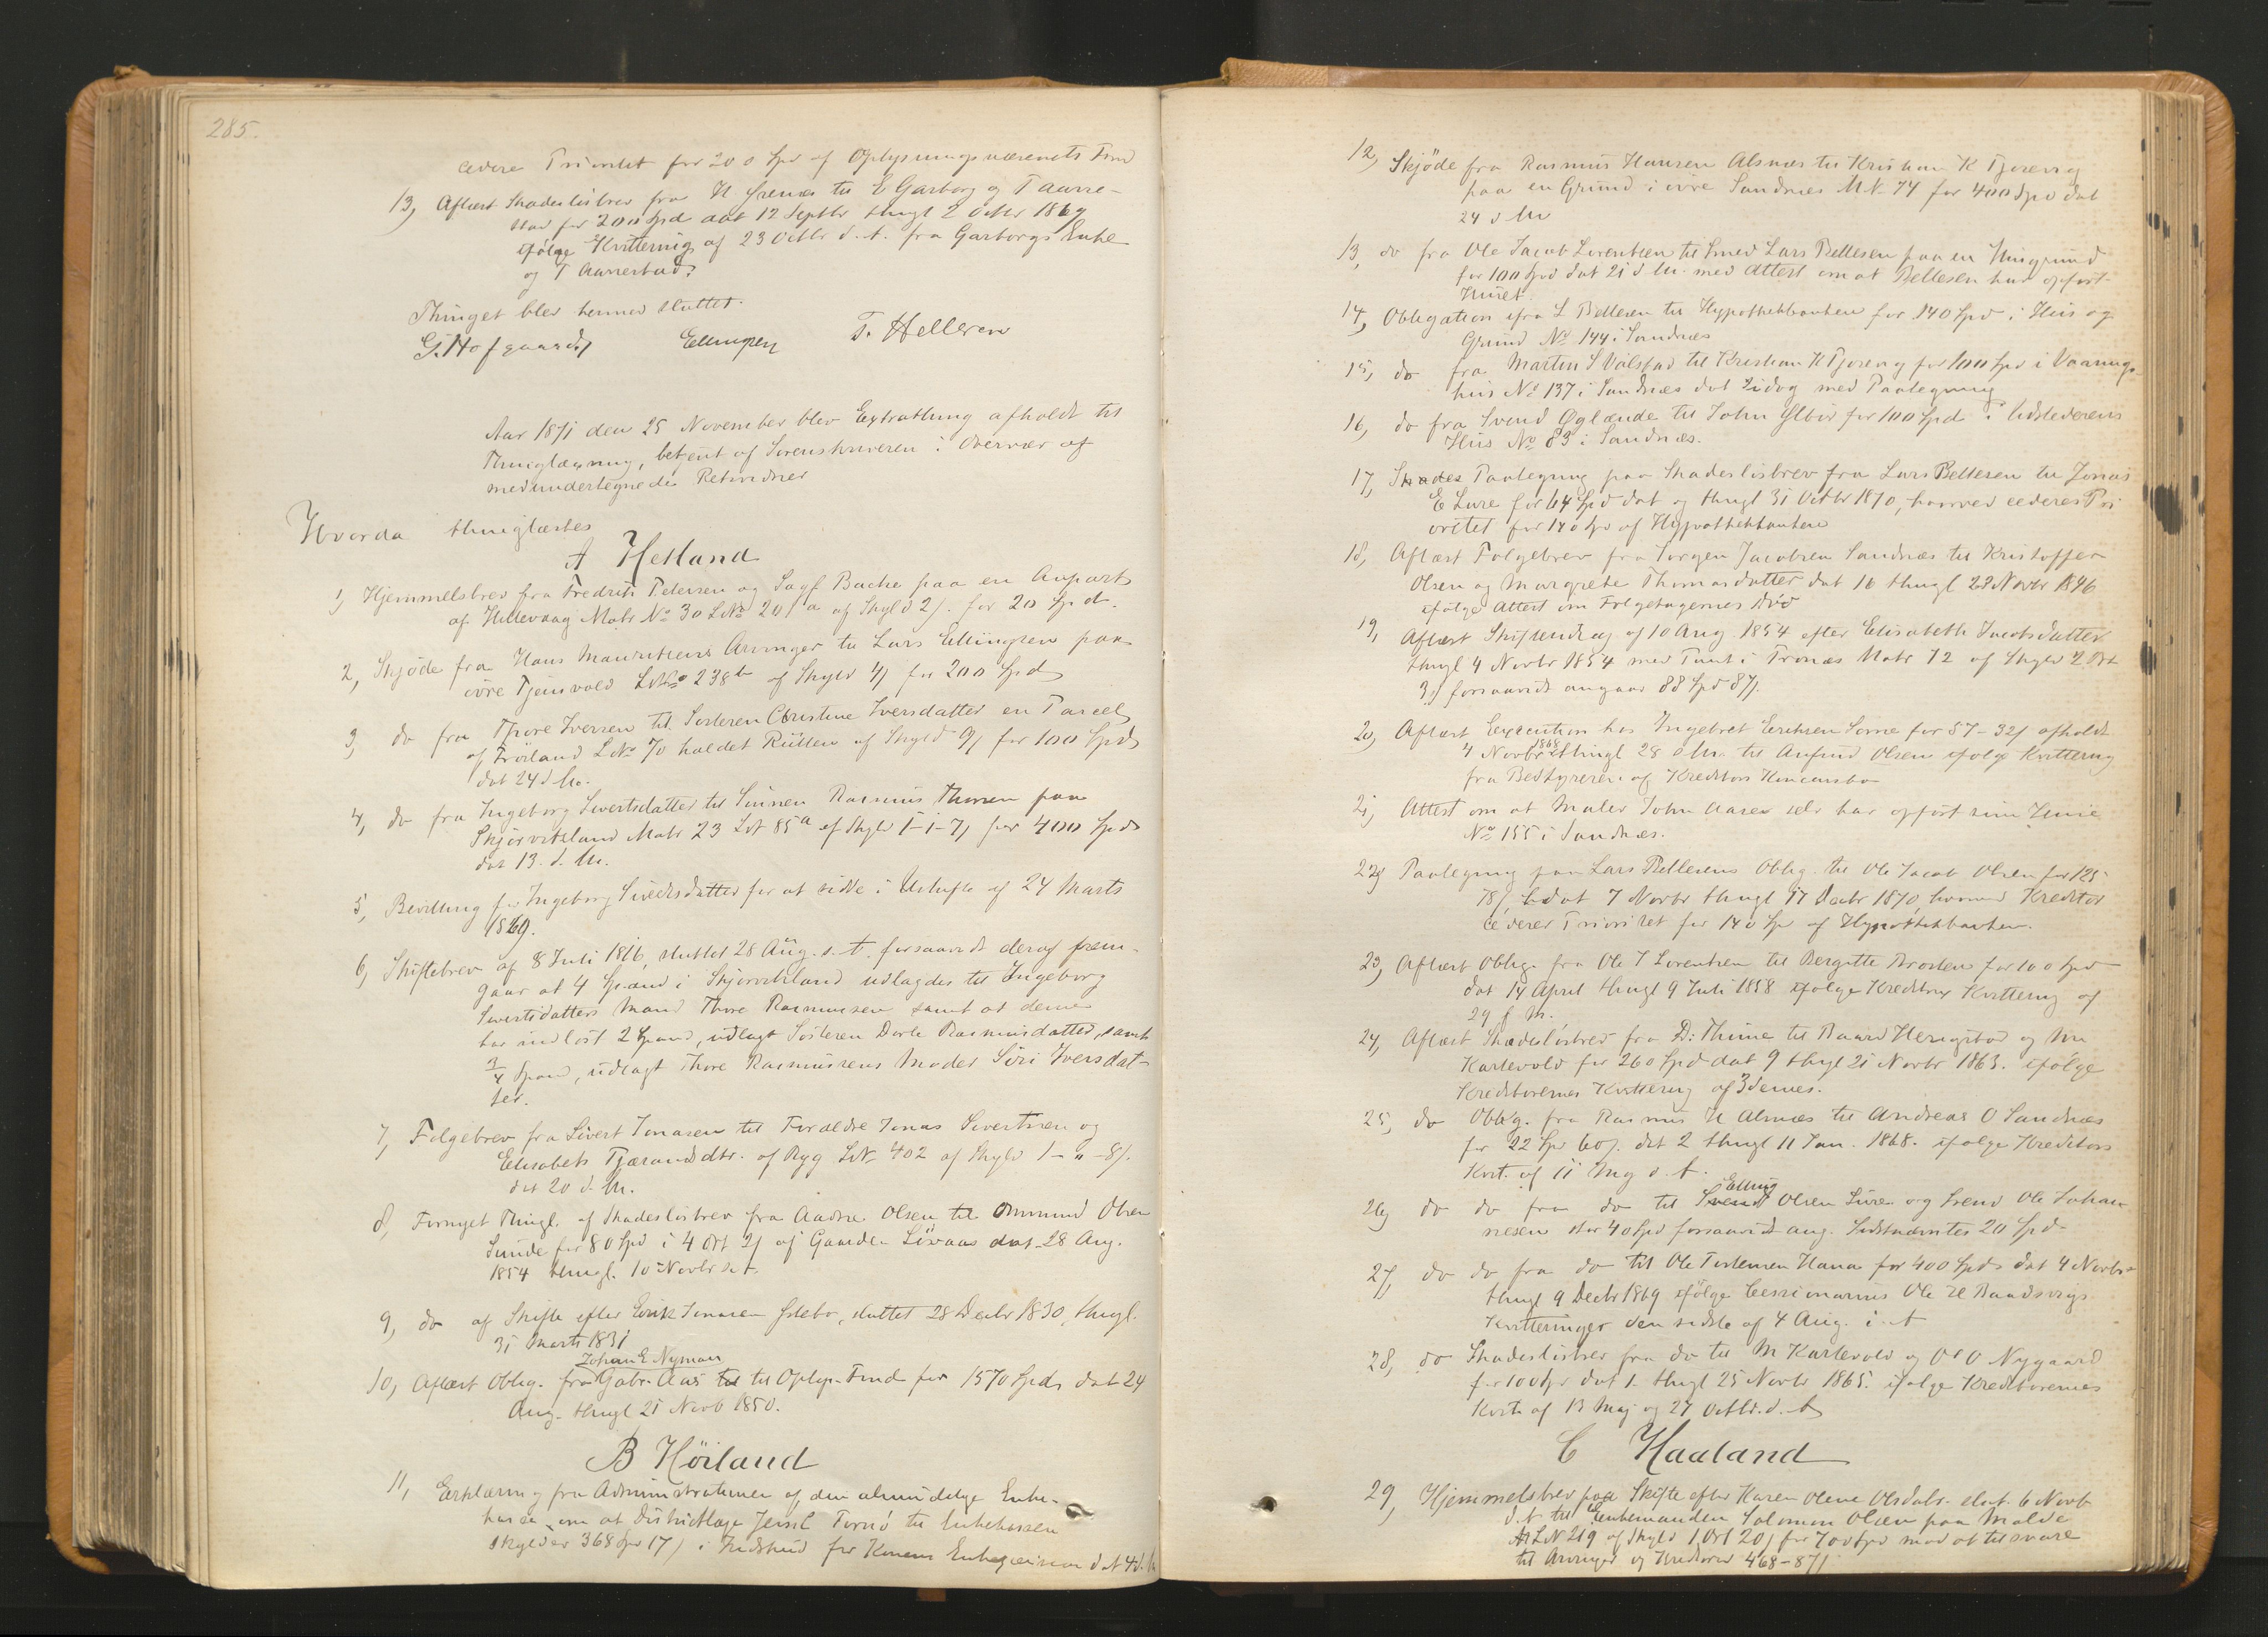 285.
cedere Prioritet for 200 Spd af Oplysningsvæsenets Fond
13, Aflæst Skadesløsbrev fra H. Grenes til E Garborg og T Aarre-
stad for 200 Spd dat 12 Septbr thingl 2 Octbr 1869
ifølge Kvittering af 23 Octbr d. A. fra Garborgs Enke
og T Aarrestad.
Thinget blev hermed sluttet.
G. Hofgaard Ellingsen T. Helleren
Aar 1871 den 25 November blev Extrathing afholdt til
Thinglæsning, betjent af Sorenskriveren i Overvær af
medundertegnede Retsvidner
Hvorda thinglæstes
A Hetland
1, Hjemmelsbrev fra Fredrik Petersen og Sagf. Bache paa en Anpart
af Hillevaag Matr No 30 LNo 201 a af Skyld 2 ſ. for 20 Spd.
2, Skjøde fra Hans Mauritzens Arvinger til Lars Ellingsen paa
øvre Tjensvold LNo 238 b af Skyld 4 ſ for 200 Spd
3, do fra Thore Iversen til Søsteren Christine Iversdatter en Parcel
af Frøiland LNo 70 kaldet Rütlen af Skyld 9 ſ for 100 Spd
dat 24 d. M.
4, do fra Ingeborg Sivertsdatter til Sønnen Rasmus Thorsen paa
Skjørvikland Matr 23 LN 85 a af Skyld 1-1-7 ſ for 400 Spd
dat 13. d. M.
5, Bevilling for Ingeborg Sivertsdatter for at sidde i Uskifte af 24 Marts
1869.
6, Skiftebrev af 8 Juli 1816, sluttet 28 Aug. s. A. forsaavidt deraf frem-
gaar at 4 Spand i Skjørvikland udlagdes til Ingeborg
Sivertsdatters Mand Thore Rasmussen samt at denne
har indløst 2 Spand, udlagt Søsteren Dorte Rasmusdatter, samt
3/4 Spand, udlagt Thore Rasmussens Moder Siri Iversdat-
ter.
7, Folgebrev fra Sivert Jonasen til Forældre Jonas Sivertsen og
Elisabeth Tjærandsdtr. af Ryg LN 402 af Skyld 1-"-8 ſ.
dat 20 d. M.
8, Fornyet Thingl. af Skadesløsbrev fra Aadne Olsen til Ommund Olsen
Sunde for 80 Spd i 4 Ort 2 ſ af Gaarden Løvaas dat 28 Aug.
1854 thingl. 10 Novbr s. A.
9, do af Skifte efter Eirik Jonasen Ylsbo, sluttet 28 Decbr 1830, thingl.
31 Marts 1831
Johan E Nyman
10, Aflæst Oblig. fra Gabr. Aas til Oplys. Fond for 1570 Spd dat 24
Aug. thingl 21 Novb 1850.
B Høiland
11, Erklæring fra Administrationen af den almindelige Enke-
kasse om at Districtlæge Jens C Tornø til Enkekassen
skylder 368 Spd 17 ſ i Indskud for Konens Enkepension dat 4 d. M
12, Skjøde fra Rasmus Hansen Alsnæs til Kristian K Tjorevig
paa en Grund i øvre Sandnæs MN 74 for 400 Spd dat
24 d M
13, do fra Ole Jacob Lorentzen til Smed Lars Pellesen paa en Husgrund
for 100 Spd dat 21 d M. med Attest om at Pellesen har opført
Huset.
14, Obligation fra L Pellesen til Hypothekbanken for 140 Spd i Hus og
Grund No 144 i Sandnæs
15, do fra Martin S Valstad til Kristian K Tjorevig for 100 Spd i Vaanings-
hus No 137 i Sandnæs dat Idag med Paategning
16, do fra Svend Øglænde til John Ylbø for 100 Spd i Udstederens
Hus No 83 i Sandnæs.
17, Skades Paategning paa Skadesløsbrev fra Lars Pellesen til Jonas
E Lure for 64 Spd dat og thingl 31 Octbr 1870, hvorved cederes Pri
oritet for 140 Spd af Hypothekbanken
18, Aflæst Folgebrev fra Jørgen Jacobsen Sandnæs til Kristoffer
Olsen og Margrete Thomasdatter dat 16 thingl 22 Novbr 1846
ifølge Attest om Folgetagernes Død
19, Aflæst Skifteudlæg af 10 Aug 1854 efter Elisabeth Jacobsdatter
thingl 4 Novbr 1854 med Pant i Tronæs Matr 72 af Skyld 2 Ort
3 ſ forsaavidt angaar 88 Spd 87 ſ.
20, Aflæst Execution hos Ingebret Eriksen Somme for 57-32 ſ afholdt
4 Novbr 1868 thingl 28 s M. til Anfind Olsen ifølge Kvittering
fra Bestyreren af Kreditors Koncursbo
21, Attest om at Maler John Aarex selv har opført sin Huse
No 155 i Sandnæs.
22, Paategning paa Lars Pellesens Oblig. til Ole Jacob Olsen for 125-
78 ſ, dat 7 Novbr thingl 17 Decbr 1870, hvorved Kreditor
cederer Prioritet for 140 Spd af Hypothekbanken.
23, Aflæst Oblig. fra Ole J Lorentzen til Bergitte Brosten for 100 Spd
dat 14 April thingl 9 Juli 1858 ifølge Kreditors Kvittering af
29 f M.
24, Aflæst Skadesløsbrev fra D. Thime til Baard Herigstad og Mn
Karlevold for 260 Spd dat 9 thingl 21 Novbr 1863. ifølge
Kreditorernes Kvittering af 3 dennes.
25, do Oblig. fra Rasmus H Alsnæs til Andreas O Sandnæs
for 22 Spd 60 ſ. dat 2 thingl 11 Jan. 1868. ifølge Kreditors
Kvit. af 11 Aug d. A.
Elling
26, do do fra do til Svend Olsen Lura og Svend Ole Johan-
nesen stor 40 Spd forsaavidt ang. Sidstnævntes 20 Spd
27, do do fra do til Ole Torkensen Hana for 400 Spd dat 4 Novbr
thingl 9 Decbr 1869 ifølge Cessionarius Ole H Raadsvigs
Kvitteringer den sidste af 4 Aug. i. A
28, do Skadesløsbrev fra do til M Karlevold og Ol O Nygaard
for 100 Spd dat 1. thingl 25 Novbr 1865. ifølge Kreditorernes
Kvit. af 13 Maj og 27 Octbr. d. A
C Haaland
29, Hjemmelsbrev paa Skifte efter Karen Olene Olsdatr. slut. 6 Novb
d. A til Enkemanden Salomon Olsen paa Malde
LN 219 af Skyld 1 Ort 20 ſ for 700 Spd mod at tilsvare
til Arvinger og Kreditorer 468-87 ſ